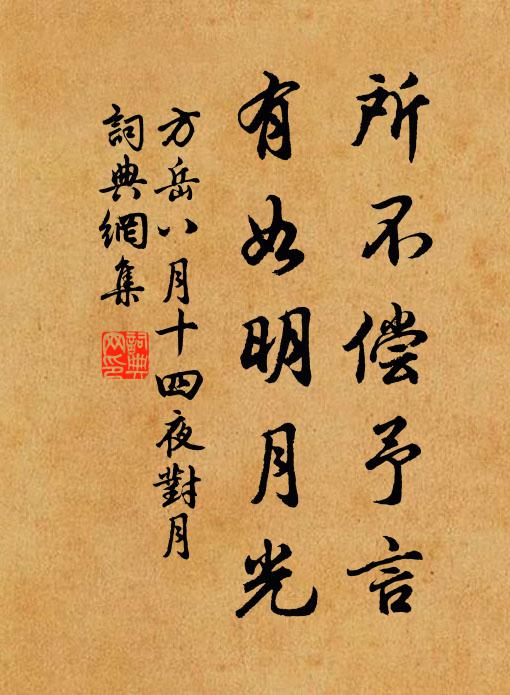 所不偿予言
有如明月光
方岳八月十四夜對月
詞典網集
詞典网印